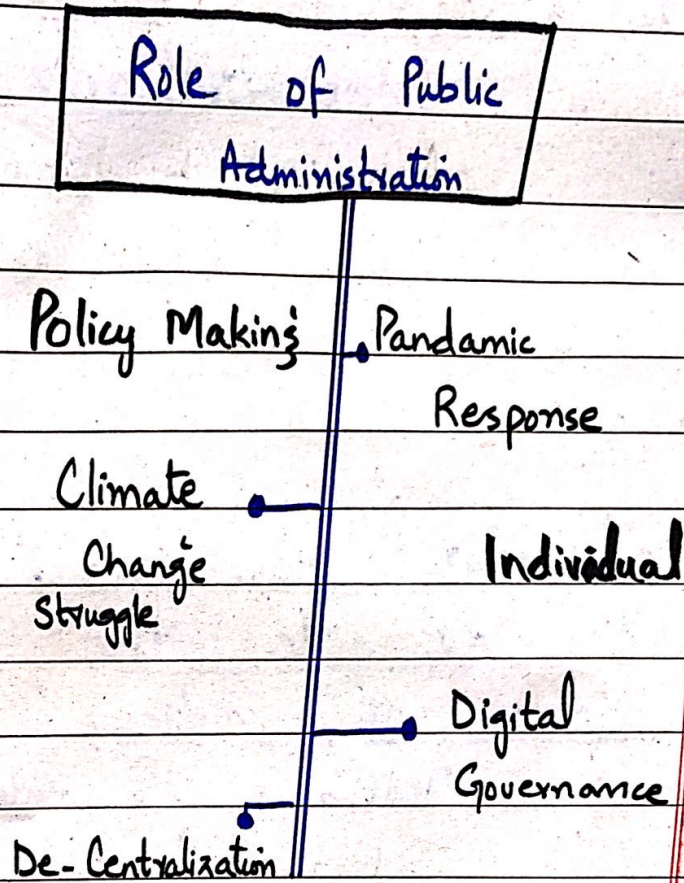 Role of Public
Administration
Policy Making
Pandamic
Response
Climate
Change
Struggle
Individual
Digital
Governance
De-Centralization